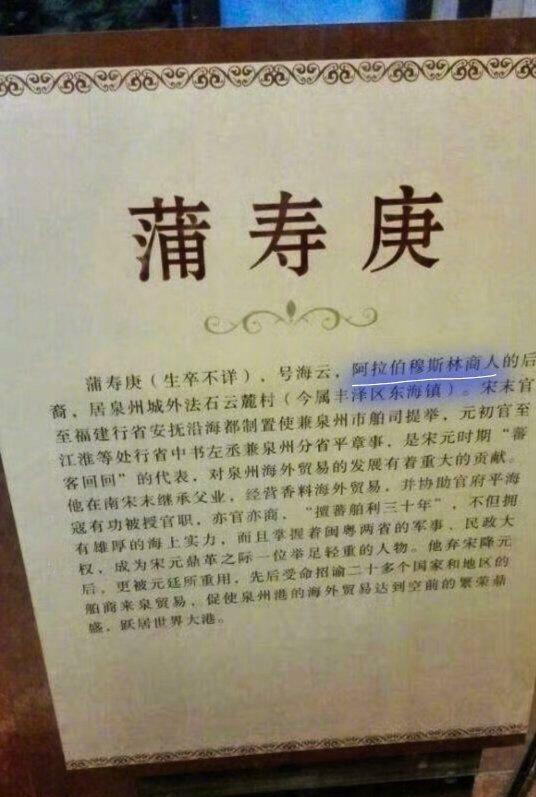 蒲寿庚
蒲寿庚（生卒不详），号海云，阿拉伯穆斯林商人的后
裔，居泉州城外法石云麓村（今属丰泽区东海镇）。宋末官
至福建行省安抚沿海都制置使兼泉州市舶司提举，元初官至
江淮等处行省中书左丞兼泉州分省平章事，是宋元时期“蕃
客回回”的代表，对泉州海外贸易的发展有着重大的贡献。
他在南宋末继承父业，经营香料海外贸易，并协助官府平海
寇有功被授官职，亦官亦商，“擅蕃舶利三十年”，不但拥
有雄厚的海上实力，而且掌握着闽粤两省的军事、民政大
权，成为宋元鼎革之际一位举足轻重的人物。他弃宋降元
后，更被元廷所重用，先后受命招谕二十多个国家和地区的
舶商来泉贸易，促使泉州港的海外贸易达到空前的繁荣鼎
盛，跃居世界大港。